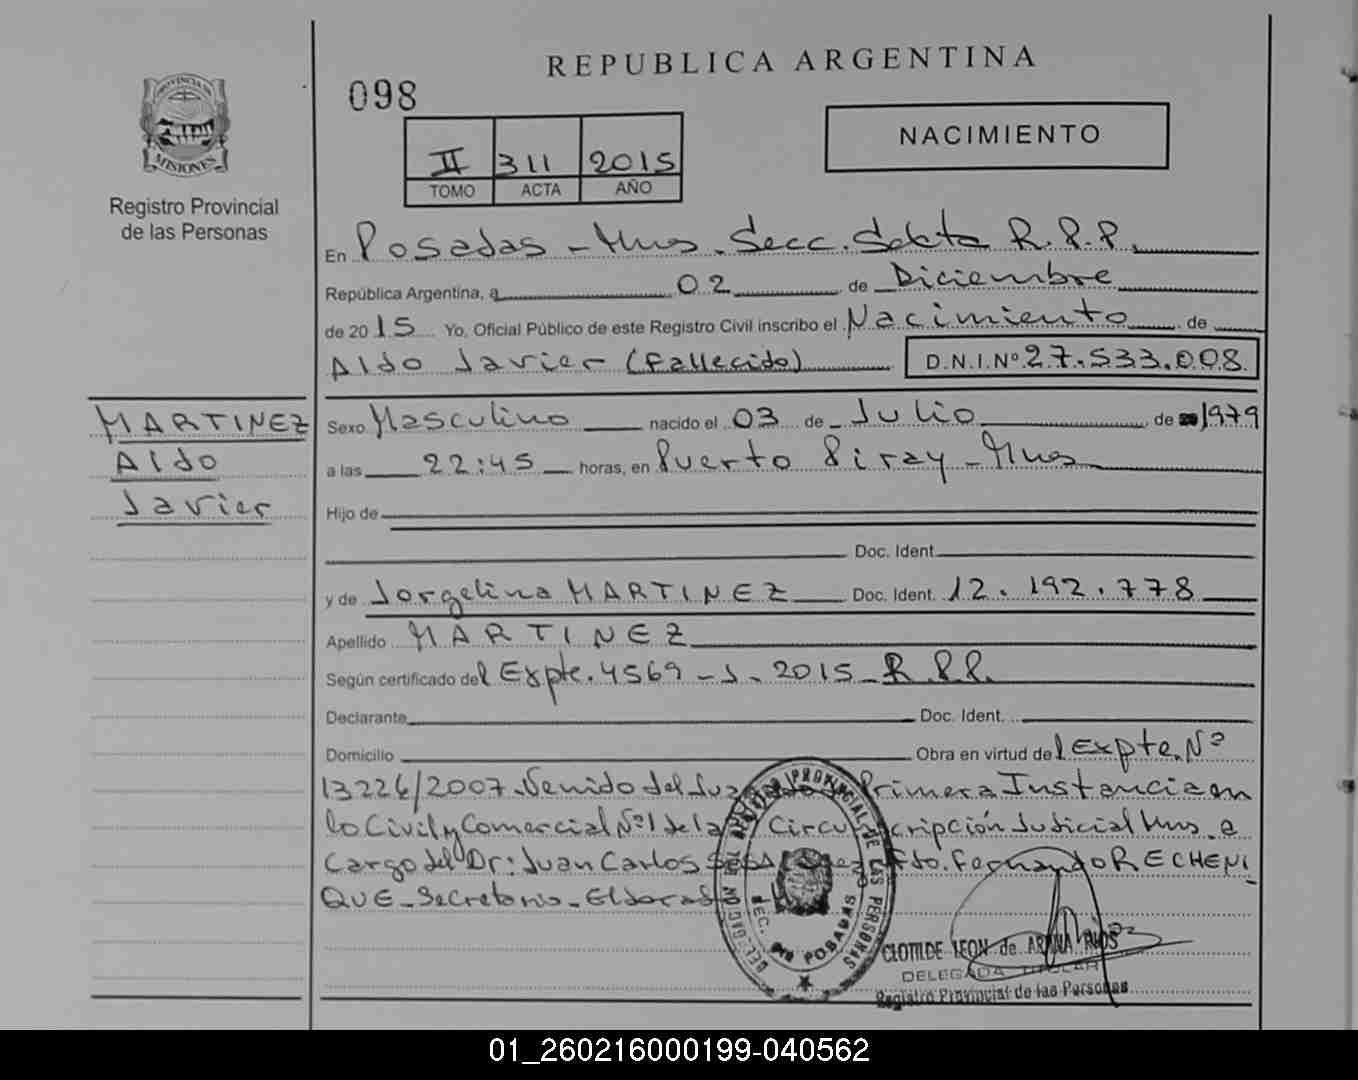 REPUBLICA ARGENTINA
098
NACIMIENTO
II 311 2015
TOMO ACTA AÑO
PROVINCIA DE
MISIONES
Registro Provincial
de las Personas
En Posadas - Mnes. Secc. Sexta R.P.P.
República Argentina, a 02 de Diciembre
de 2015 Yo, Oficial Público de este Registro Civil inscribo el Nacimiento de
Aldo Javier (Fallecido) D.N.I.Nº 27.533.008
MARTINEZ
Aldo
Javier
Sexo Masculino nacido el 03 de Julio de 1979
a las 22:45 horas, en Puerto Piray - Mnes
Hijo de
Doc. Ident.
y de Jorgelina MARTINEZ Doc. Ident. 12.192.778
Apellido MARTINEZ
Según certificado del Expte. 4569 - J - 2015 - R.P.P.
Declarante Doc. Ident.
Domicilio Obra en virtud del Expte. Nº
13226/2007. Venido del Primera Instancia en
lo Civil y Comercial Nº 1 de la Circunscripción Judicial Mnes. a
Cargo del Dr: Juan Carlos Fdo. Fernando RECHENI
QUE - Secretario - Eldorado
REGISTRO PROVINCIAL DE LAS PERSONAS
DELEGACION
POSADAS
CLOTILDE LEON de ARANA RIOS
DELEGADA TITULAR
Registro Provincial de las Personas
01_260216000199-040562